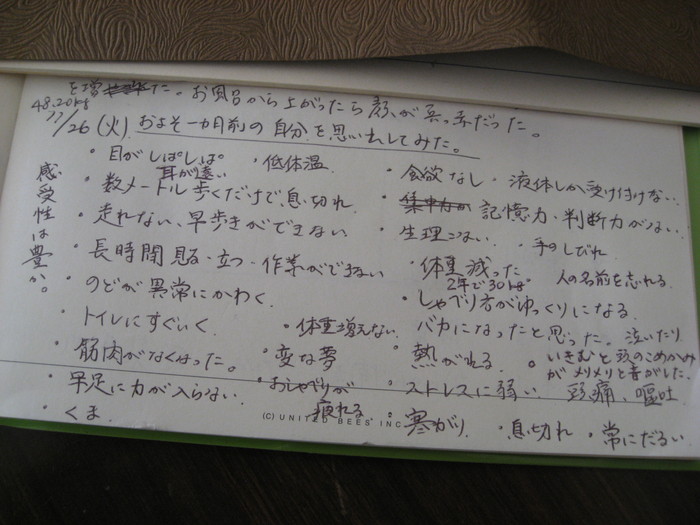 を増た。お風呂から上がったら顔が真っ赤だった。
48.20kg
11/26(火)およそ一カ月前の自分を思い出してみた。
・目がしぱしぱ ・低体温
耳が遠い
・食欲なし・液体しか受け付けない
・数メートル歩くだけで息切れ
・記憶力・判断力がない
・走れない、早歩きができない
・生理こない ・手のしびれ
・長時間見る・立つ・作業ができない
・体重減った
2年で30kg
人の名前を忘れる
・のどが異常にかわく
・しゃべり方がゆっくりになる
・トイレにすぐいく ・体重増えない
バカになったと思った。泣いたり
・筋肉がなくなった。 ・変な夢
・熱がでる ・いきむと頭のこめかみ
がメリメリと音がした
・手足に力が入らない ・おしゃべりが
疲れる
・ストレスに弱い 頭痛、嘔吐
・くま
・寒がり ・息切れ ・常にだるい
感受性は豊か。
(C) UNITED BEES INC